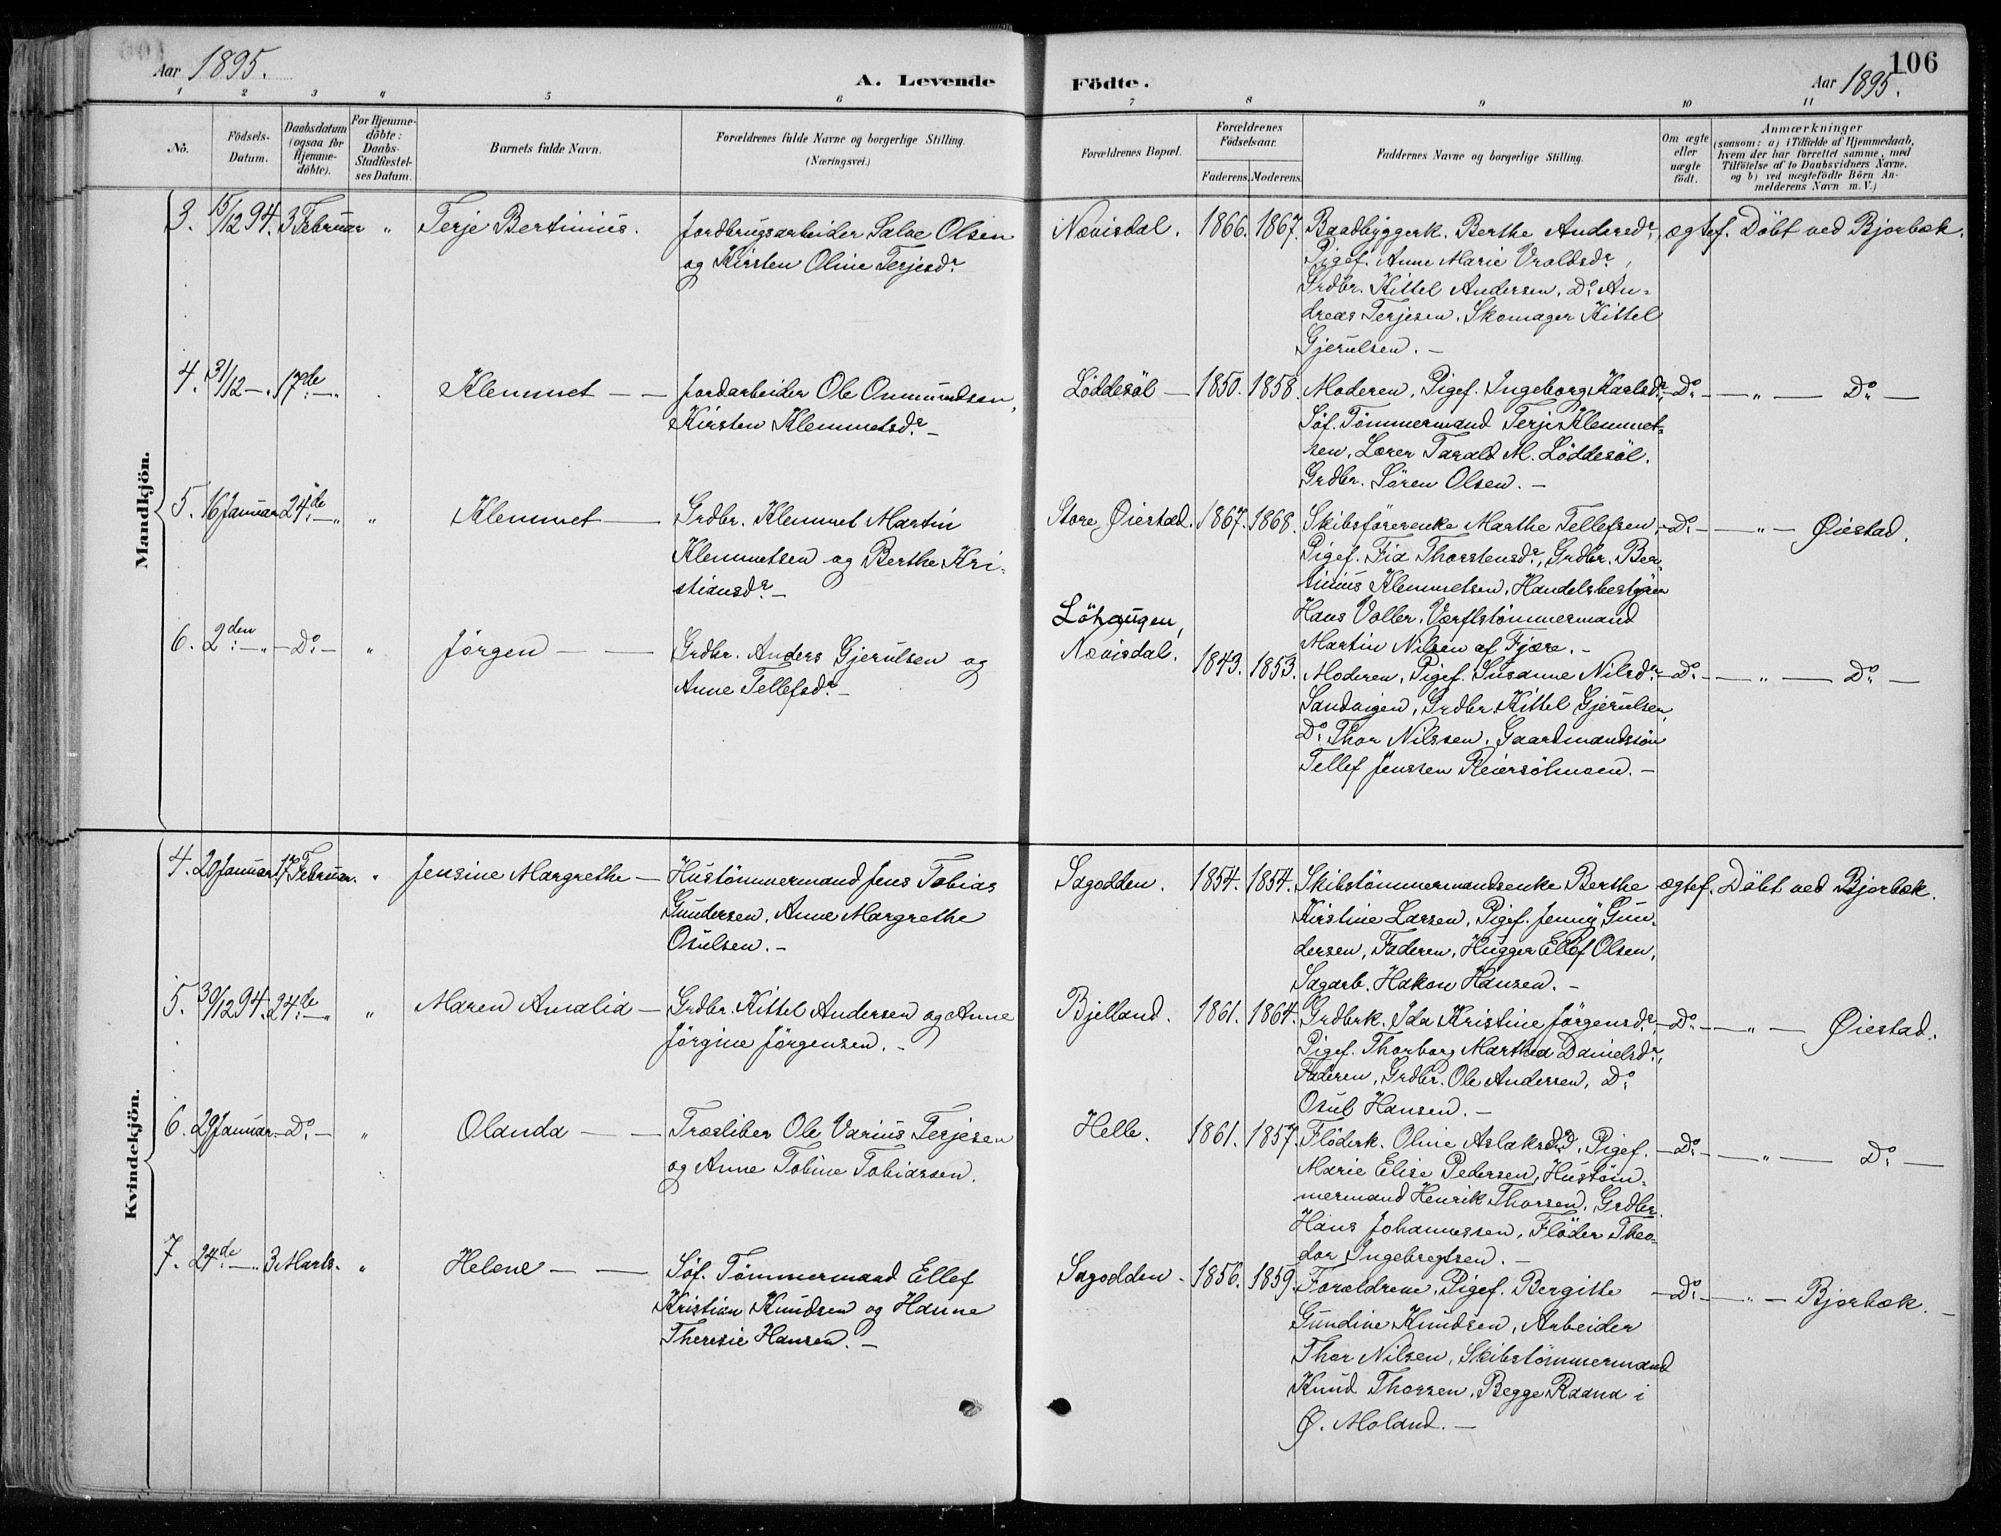 Aar 1895.
A. Levende
Födte.
Aar 1895.
106
1 2 3 4 5 6 7 8 9 10 11
No.
Födsels-
Datum.
Daabsdatum
(ogsaa for
Hjemme-
döbte).
For Hjemme-
döbte:
Daabs-
Stadfæstel-
ses Datum.
Barnets fulde Navn.
Forældrenes fulde Navne og borgerlige Stilling.
(Næringsvei.)
Forældrenes Bopæl.
Forældrenes
Födselsaar.
Faderens. Moderens.
Faddernes Navne og borgerlige Stilling.
Om ægte
eller
uægte
födt.
Anmærkninger
(saasom: a) i Tilfælde af Hjemmedaab,
hvem der har forrettet samme, med
Tilföielse af to Daabsvidners Navne.
og b) ved uægtefödte Börn An-
melderens Navn m. V.)
Mandkjön.
3. 15/12 94. 3 Februar „ Terje Bertinius. Jordbrugsarbeider Salve Olsen
og Kirsten Oline Terjesdr
Nævisdal. 1866. 1867. Baadbyggerk. Berthe Andersdr, ægtef. Döbt ved Bjorbæk.
Pigef. Anne Marie Vroldsdr,
Grdbr. Kittel Andersen, Do An-
dreas Terjesen, Skomager Kittel
Gjerulsen. –
4. 31/12 –. 17de – „ Klemmet – – Jordarbeider Ole Onmundsen,
Kirsten Klemmetsdr –
Löddesöl – 1850. 1858. Moderen, Pigef. Ingeborg Karlsdr, – Do – – „ – Do –
Söf. Tömmermand Terje Klemmet-
sen, Lærer Tarald M. Löddesöl.
Grdbr. Sören Olsen. –
5. 16 Januar 24de – „ „ Klemmet – Grdbr. Klemmet Martin
Klemmetsen og Berthe Kri-
stiansdr –
Store Øiestad. 1867. 1868. Skibsförerenke Marthe Tellefsen, – Do – – „ – Øiestad.
Pigef. Fia Thorstensdr, Grdbr. Ber-
tinius Klemmetsen, Handelsbestyrer
Hans Voller, Værftstömmermand
Martin Nilsen af Fjære. –
6. 2den – „ – Do – „ Jörgen – – Grdbr. Anders Gjerulsen og
Anne Tellefsdr –
Löhaugen,
Nævisdal. 1843. 1853. Moderen, Pigef. Susanne Nilsdr – Do – – „ – Do –
Sandvigen, Grdbr. Kittel Gjerulsen,
Do Thor Nilssen, Gaardmandssön
Tellef Jenssen Reiersölmoen. –
Kvindekjön.
4. 20 Januar 17 Februar. „ Jensine Margrethe – Hustömmermand Jens Tobias
Gundersen, Anne Margrethe
Osulsen. –
Sagodden. 1854. 1854. Skibstömmermandsenke Berthe ægtef. Döbt ved Bjorbæk.
Kirstine Larsen, Pigef. Jenny Gun-
dersen, Faderen, Hugger Ellef Olsen,
Sagarb. Hakon Hansen. –
5. 30/12 94. 24de – „ „ Maren Amalia – Grdbr. Kittel Andersen og Anne
Jörgine Jörgensen. –
Bjelland. 1861. 1864. Grdbrk. Ida Kristine Jörgensdr – Do – – „ – Øiestad.
Pigef. Thorborg Marthea Danielsdr,
Faderen, Grdbr. Ole Andersen, Do
Osul Hansen. –
6. 29 Januar. – Do – „ Olanda – – Træsliber Ole Varius Terjesen
og Anne Tobine Tobiassen.
Helle. 1861. 1857. Flöderk. Oline Aslaksdr, Pigef. – Do – – „ – Do –
Marie Elise Pedersen, Hustöm-
mermand Henrik Thorsen, Grdbr.
Hans Johannessen, Flöder Theo-
dor Ingebregtsen. –
7. 24de – „ 3 Marts. „ Helene – – Söf. Tömmermand Ellef
Kristian Knudsen og Hanne
Theresie Hansen. –
Sagodden. 1856. 1859. Forældrene, Pigef. Bergitte – Do – – „ – Bjorbæk. –
Gundine Knudsen, Arbeider
Thor Nilsen, Skibstömmermand
Knud Thorsen, Begge Raana i
Ø. Moland. –